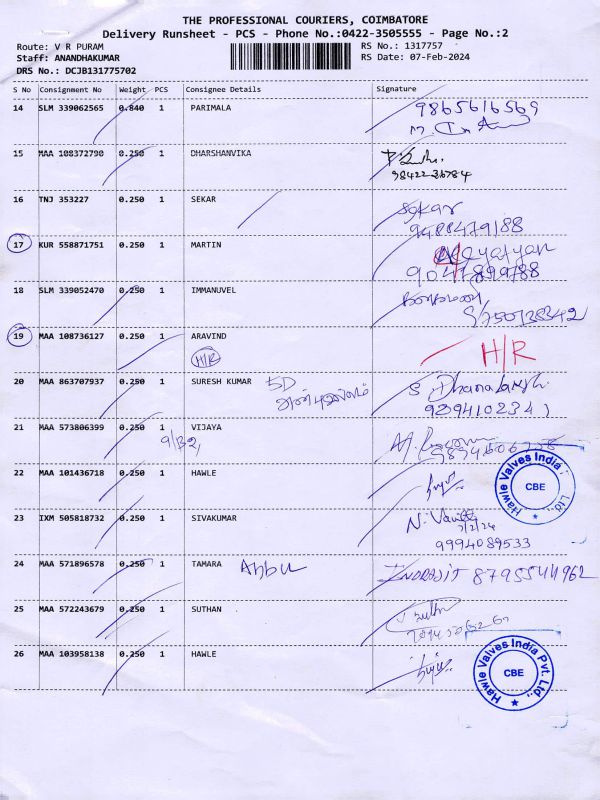 THE PROFESSIONAL COURIERS, COIMBATORE
Delivery Runsheet - PCS - Phone No.:0422-3505555 - Page No.:2
Route: V R PURAM RS No.: 1317757
Staff: ANANDHAKUMAR RS Date: 07-Feb-2024
DRS No.: DCJB131775702
S No Consignment No Weight PCS Consignee Details Signature
14 SLM 339062565 0.840 1 PARIMALA 9865616569
15 MAA 108372790 0.250 1 DHARSHANVIKA
98422-36784
16 TNJ 353227 0.250 1 SEKAR Sekar
9488479188
17 KUR 558871751 0.250 1 MARTIN
18 SLM 339052470 0.250 1 IMMANUVEL
19 MAA 108736127 0.250 1 ARAVIND H/R
H/R
20 MAA 863707937 0.250 1 SURESH KUMAR 5D S. Dhanalaksh.
21 MAA 573806399 0.250 1 VIJAYA
22 MAA 101436718 0.250 1 HAWLE
Hawle Valves India Ltd.,
CBE
23 IXM 505818732 0.250 1 SIVAKUMAR
7/2/24
9994089533
24 MAA 571896578 0.250 1 TAMARA Anbu INDRAJIT 8795544962
25 MAA 572243679 0.250 1 SUTHAN
26 MAA 103958138 0.250 1 HAWLE
Hawle Valves India Pvt. Ltd.,
CBE